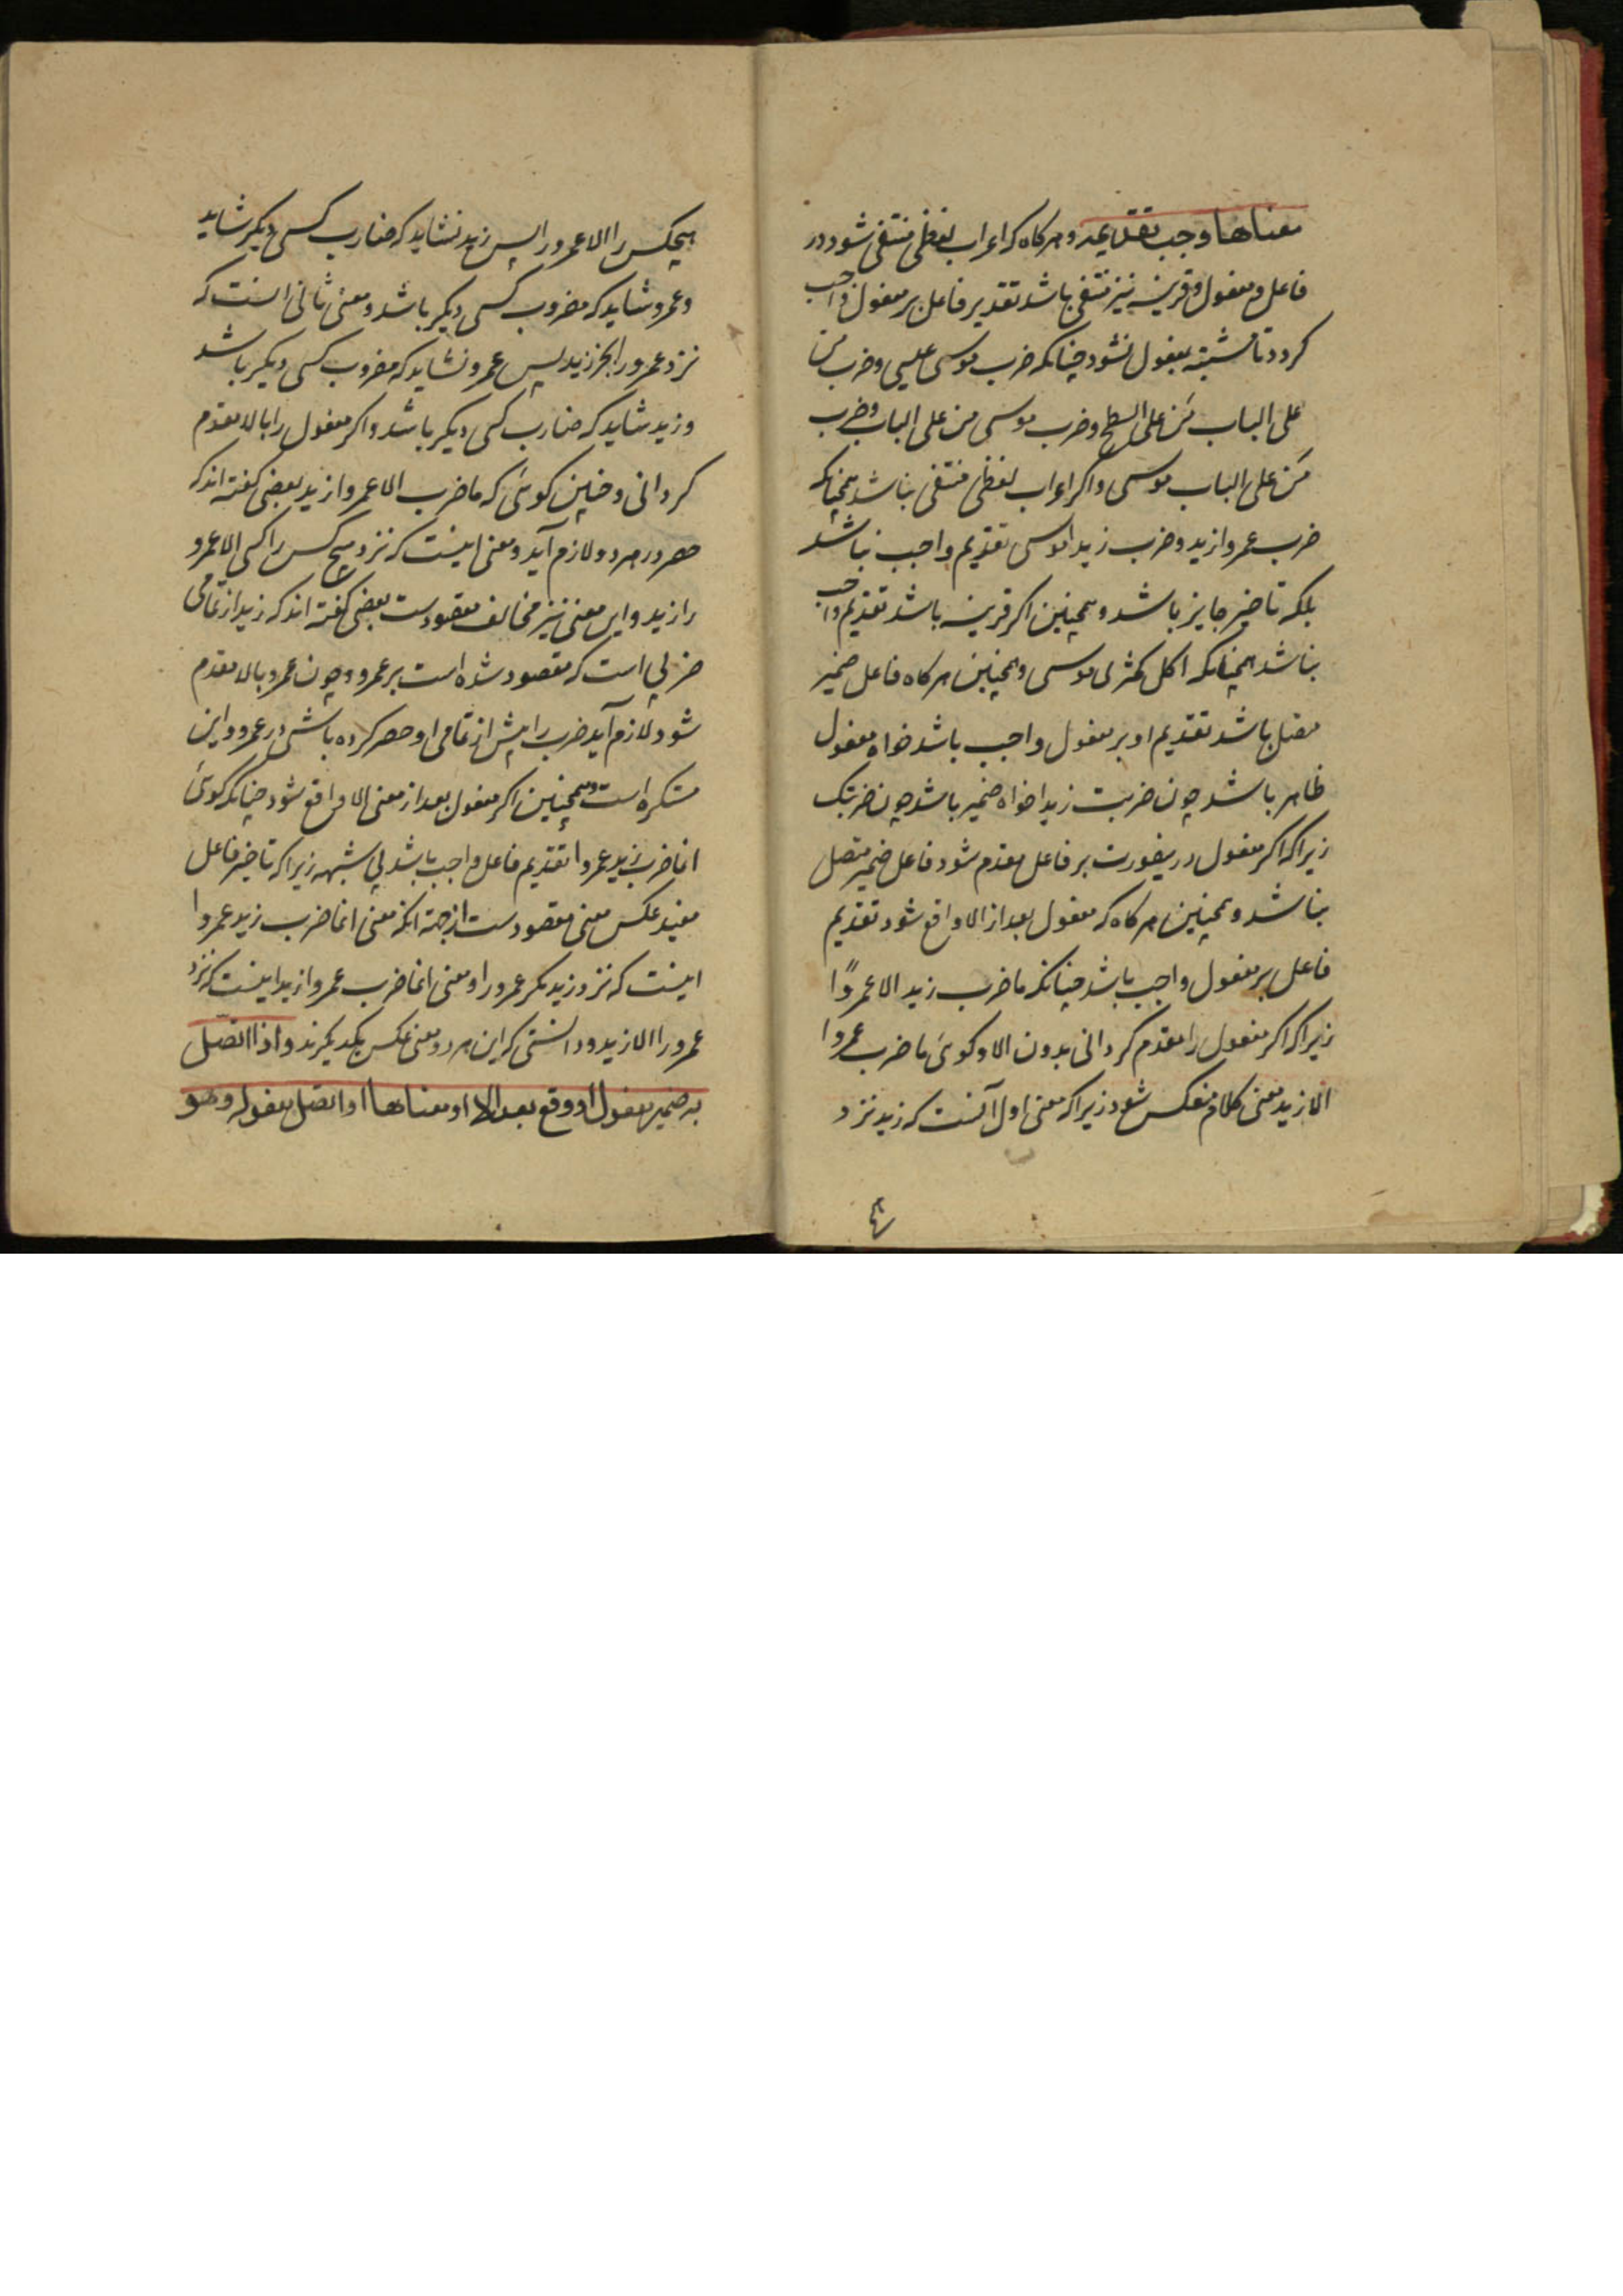 معناها وجب تقدیمه و هر کاه که اعراب لفظی منتفی شود در
فاعل و مفعول و قرینه نیز منتفی باشد تقدیر فاعل بر مفعول واجب
کردد تا مشتبه بمفعول نشود چنانکه ضرب موسی عیسی و ضرب من
علی الباب مَن علی السطح و ضرب موسی من علی الباب و ضرب
مَن علی الباب موسی و اکر اعراب لفظی منتفی نباشد همچنانکه
ضرب عمروا زید و ضرب زیدا موسی تقدیم واجب نباشد
بلکه تاخیر جایز باشد و همچنین اکر قرینه باشد تقدیم واجب
نباشد همچنانکه اکل کمثری موسی و همچنین هر کاه فاعل ضمیر
متصل باشد تقدیم او بر مفعول واجب باشد خواه مفعول
ظاهر باشد چون ضربت زیدا خواه ضمیر باشد چون ضربتک
زیرا که اکر مفعول درینصورت بر فاعل مقدم شود فاعل ضمیر متصل
نباشد و همچنین هر کاه که مفعول بعد از الا واقع شود تقدیم
فاعل بر مفعول واجب باشد چنانکه ما ضرب زید الا عمروًا
زیرا که اکر مفعول را مقدم کردانی بدون الا و کوئی ما ضرب عمروا
الا زید معنی کلام منعکس شود زیرا که معنی اول آنست که زید نزد
هیچکس را الا عمرو را پس زید نشاید که ضارب کسی دیکر شاید
و عمرو شاید که مضروب کسی دیکر باشد و معنی ثانی انست که
نزد عمرو را بجز زید پس عمرو نشاید که مضروب کسی دیکر باشد
و زید شاید که ضارب کسی دیکر باشد و اکر مفعول را با الا مقدم
کردانی و چنین کوئی که ما ضرب الا عمروا زید بعضی کفته اند که
حصر در هر دو لازم آید و معنی اینست که نزد هیچ کس را کسی الا عمرو
را زید و این معنی نیز مخالف مقصودست بعضی کفته اند که زید از تمامی
ضربی است که مقصود شده است بر عمرو و چون عمرو با الا مقدم
شود لازم آید ضرب را پیش از تمامی او حصر کرده باشی در عمرو و این
مستکره است و همچنین اکر مفعول بعد از معنی الا واقع شود چنانکه کوئی
انما ضرب زید عمروا تقدیم فاعل واجب باشد بی شبهه زیرا که تاخیر فاعل
مفید عکس معنی مقصودست از جهة انکه معنی انما ضرب زید عمروا
اینست که نزد زید مکر عمرو را و معنی انما ضرب عمروا زید اینست که نزد
عمرو را الا زید و دانستی که این هر دو معنی عکس یکدیکرند واذا اتصل
به ضمیر مفعول او وقع بعد الا او معناها او اتصل مفعوله وهو